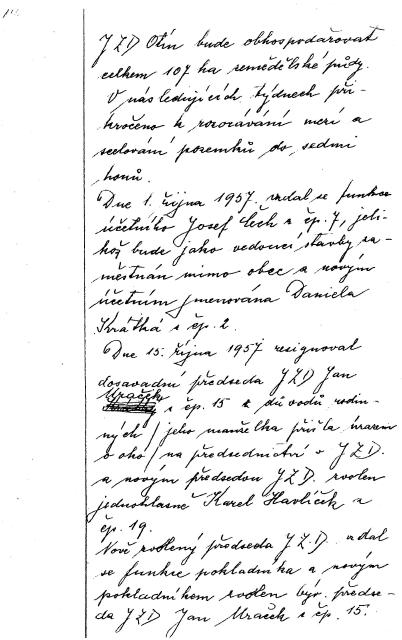 JZD Otín bude obhospodařovat
celkem 107 ha zemědělské půdy.
V následujících týdnech při-
kročeno k rozorávání mezí a
scelování pozemků do sedmi
honů.
Dne 1. října 1957 vzdal se funkce
účetního Josef Čech z čp. 7, jeli-
kož bude jako vedoucí stavby za-
městnán mimo obec a novým
účetním jmenována Daniela
Krátká z čp. 2.
Dne 15. října 1957 resignoval
dosavadní předseda JZD Jan
Mraček
z čp. 15 z důvodů rodin-
ných / jeho manželka přišla úrazem
o oko / na předsednictví v JZD.
a novým předsedou JZD. zvolen
jednohlasně Karel Havlíček z
čp. 19.
Nově zvolený předseda JZD. vzdal
se funkce pokladníka a novým
pokladníkem zvolen býv. předse-
da JZD Jan Mraček z čp. 15.